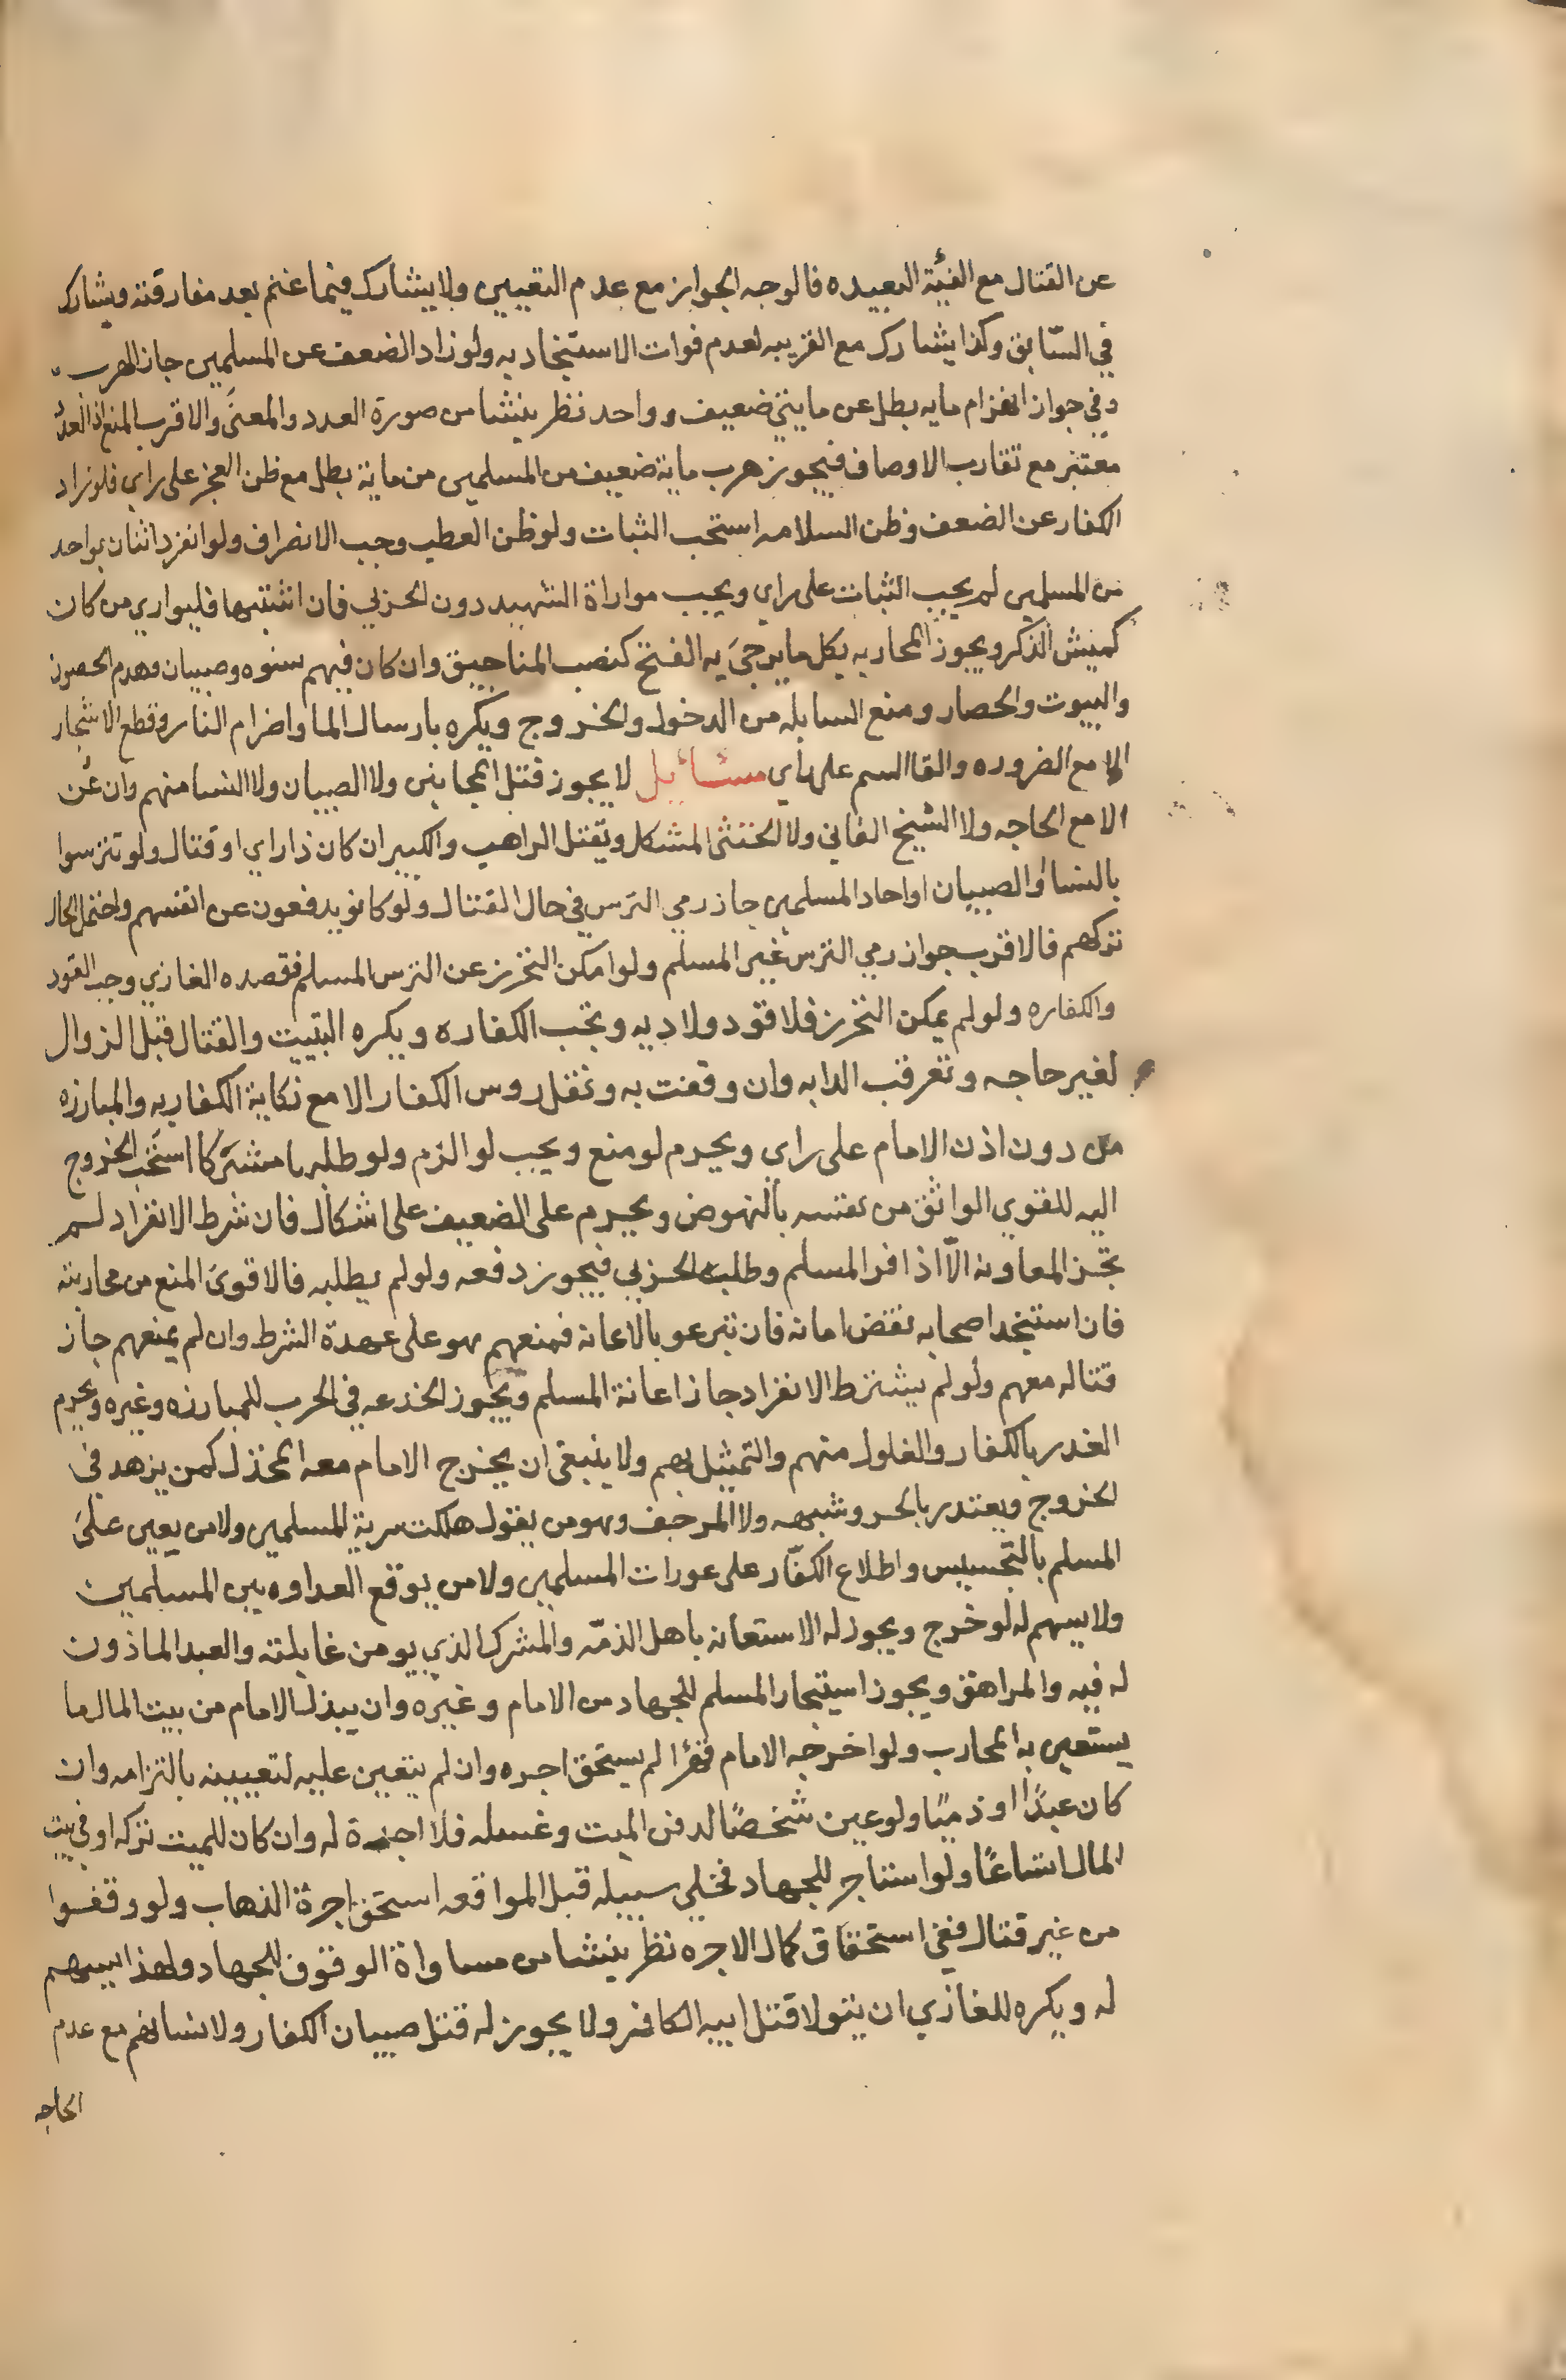 عن القتال مع الفئة البعيده فالوجه الجواز مع عدم التعيين ولا يشارك فيما غنم بعد مفارقته ويشارك
في السّابق وكذا يشارك مع القريبه لعدم فوات الاستنجاد به ولو زاد الضعف عن المسلمين جاز الهرب
وفي جواز انهزام مايه بطل عن مايتي ضعيف وواحد نظر ينشا من صورة العدد والمعنى والاقرب المنع اذ العدد
معتبر مع تقارب الاوصاف فيجوز هرب ماية ضعيف من المسلمين من ماية بطل مع ظن العجز على راي فلو زاد
الكفار عن الضعف وظن السلامه استحب الثبات ولو ظن العطب وجب الانصراف ولو انفرد اثنان بواحد
من المسلمين لم يجب الثبات على راي ويجب مواراة الشهيد دون الحربي فان اشتبها فليواري من كان
كميش الذكر ويجوز المحاربه بكل ما يرجى به الفتح كنصب المناجيق وان كان فيهم نسوه وصبيان وهدم الحصون
والبيوت والحصار ومنع السابله من الدخول والخروج ويكره بارسال الما واضرام النار وقطع الاشجار
الا مع الضروره والقا السم على راي مسائل لا يجوز قتل المجانين ولا الصبيان ولا النسا منهم وان عُن
الا مع الحاجه ولا الشيخ الفاني ولا الخنثى المشكل ويقتل الراهب والكبير ان كان ذا راي او قتال ولو تترسوا
بالنسا والصبيان او احاد المسلمين جاز رمي الترس في حال القتال ولو كانو يدفعون عن انفسهم واحتمل الحال
تركهم فالاقرب جواز رمي الترس غير المسلم ولو امكن التحرز عن الترس المسلم فقصده الغازي وجب القود
والكفاره ولو لم يمكن التحرز فلا قود ولا ديه وتجب الكفاره ويكره التبييت والقتال قبل الزوال
لغير حاجه وتعرقب الدابه وان وقفت به ونقل روس الكفار الا مع نكاية الكفار به والمبارزه
من دون اذن الامام على راي ويحرم لو منع ويجب لو الزم ولو طلبها مشركا استحب الخروج
اليه للقوي الواثق من نفسه بالنهوض ويحرم على الضعيف على اشكال فان شرط الانفراد لم
تجز المعاونه الّا اذا فر المسلم وطلبه الحربي فيجوز دفعه ولو لم يطلبه فالاقوى المنع من محاربته
فان استنجد اصحابه نقض امانه فان تبرعو بالاعانه فمنعهم فهو على عهدة الشرط وان لم يمنعهم جاز
قتاله معهم ولو لم يشترط الانفراد جاز اعانة المسلم ويجوز الخدعه في الحرب للمبارزه وغيره ويحرم
الغدر بالكفار والغلول منهم والتمثيل بهم ولا ينبغى ان يخرج الامام معه المخذل كمن يزهد في
الخروج ويعتدر بالحر وشبهه ولا المرجف وهو من يقول هلكت سرية المسلمين ولا من يعين على
المسلم بالتجسيس واطلاع الكفّار على عورات المسلمين ولا من يوقع العداوه بين المسلمين
ولا يسهم له لو خرج ويجوز له الاستعانه باهل الذمّه والمشرك الذي يومن غايلته والعبد الماذون
له فيه والمراهق ويجوز استيجار المسلم للجهاد من الامام وغيره وان يبذل الامام من بيت المال ما
يستعين به المحارب ولو اخرجه الامام قهرا لم يستحق اجره وان لم يتعين عليه لتعيينه بالزامه وان
كان عبدًا او ذميًا ولو عين شخصًا لدفن الميت وغسله فلا اجرة له وان كان للميت تركه او في بيت
المال اتساعًا ولو استاجر للجهاد فخلي سبيله قبل المواقعه استحق اجرة الذهاب ولو وقفوا
من غير قتال ففي استحقاق كمال الاجره نظر ينشا من مساواة الوقوف للجهاد ولهذا يسهم
له ويكره للغازي ان يتولا قتل ابيه الكافر ولا يجوز له قتل صبيان الكفار ولا نسائهم مع عدم
الحاجه